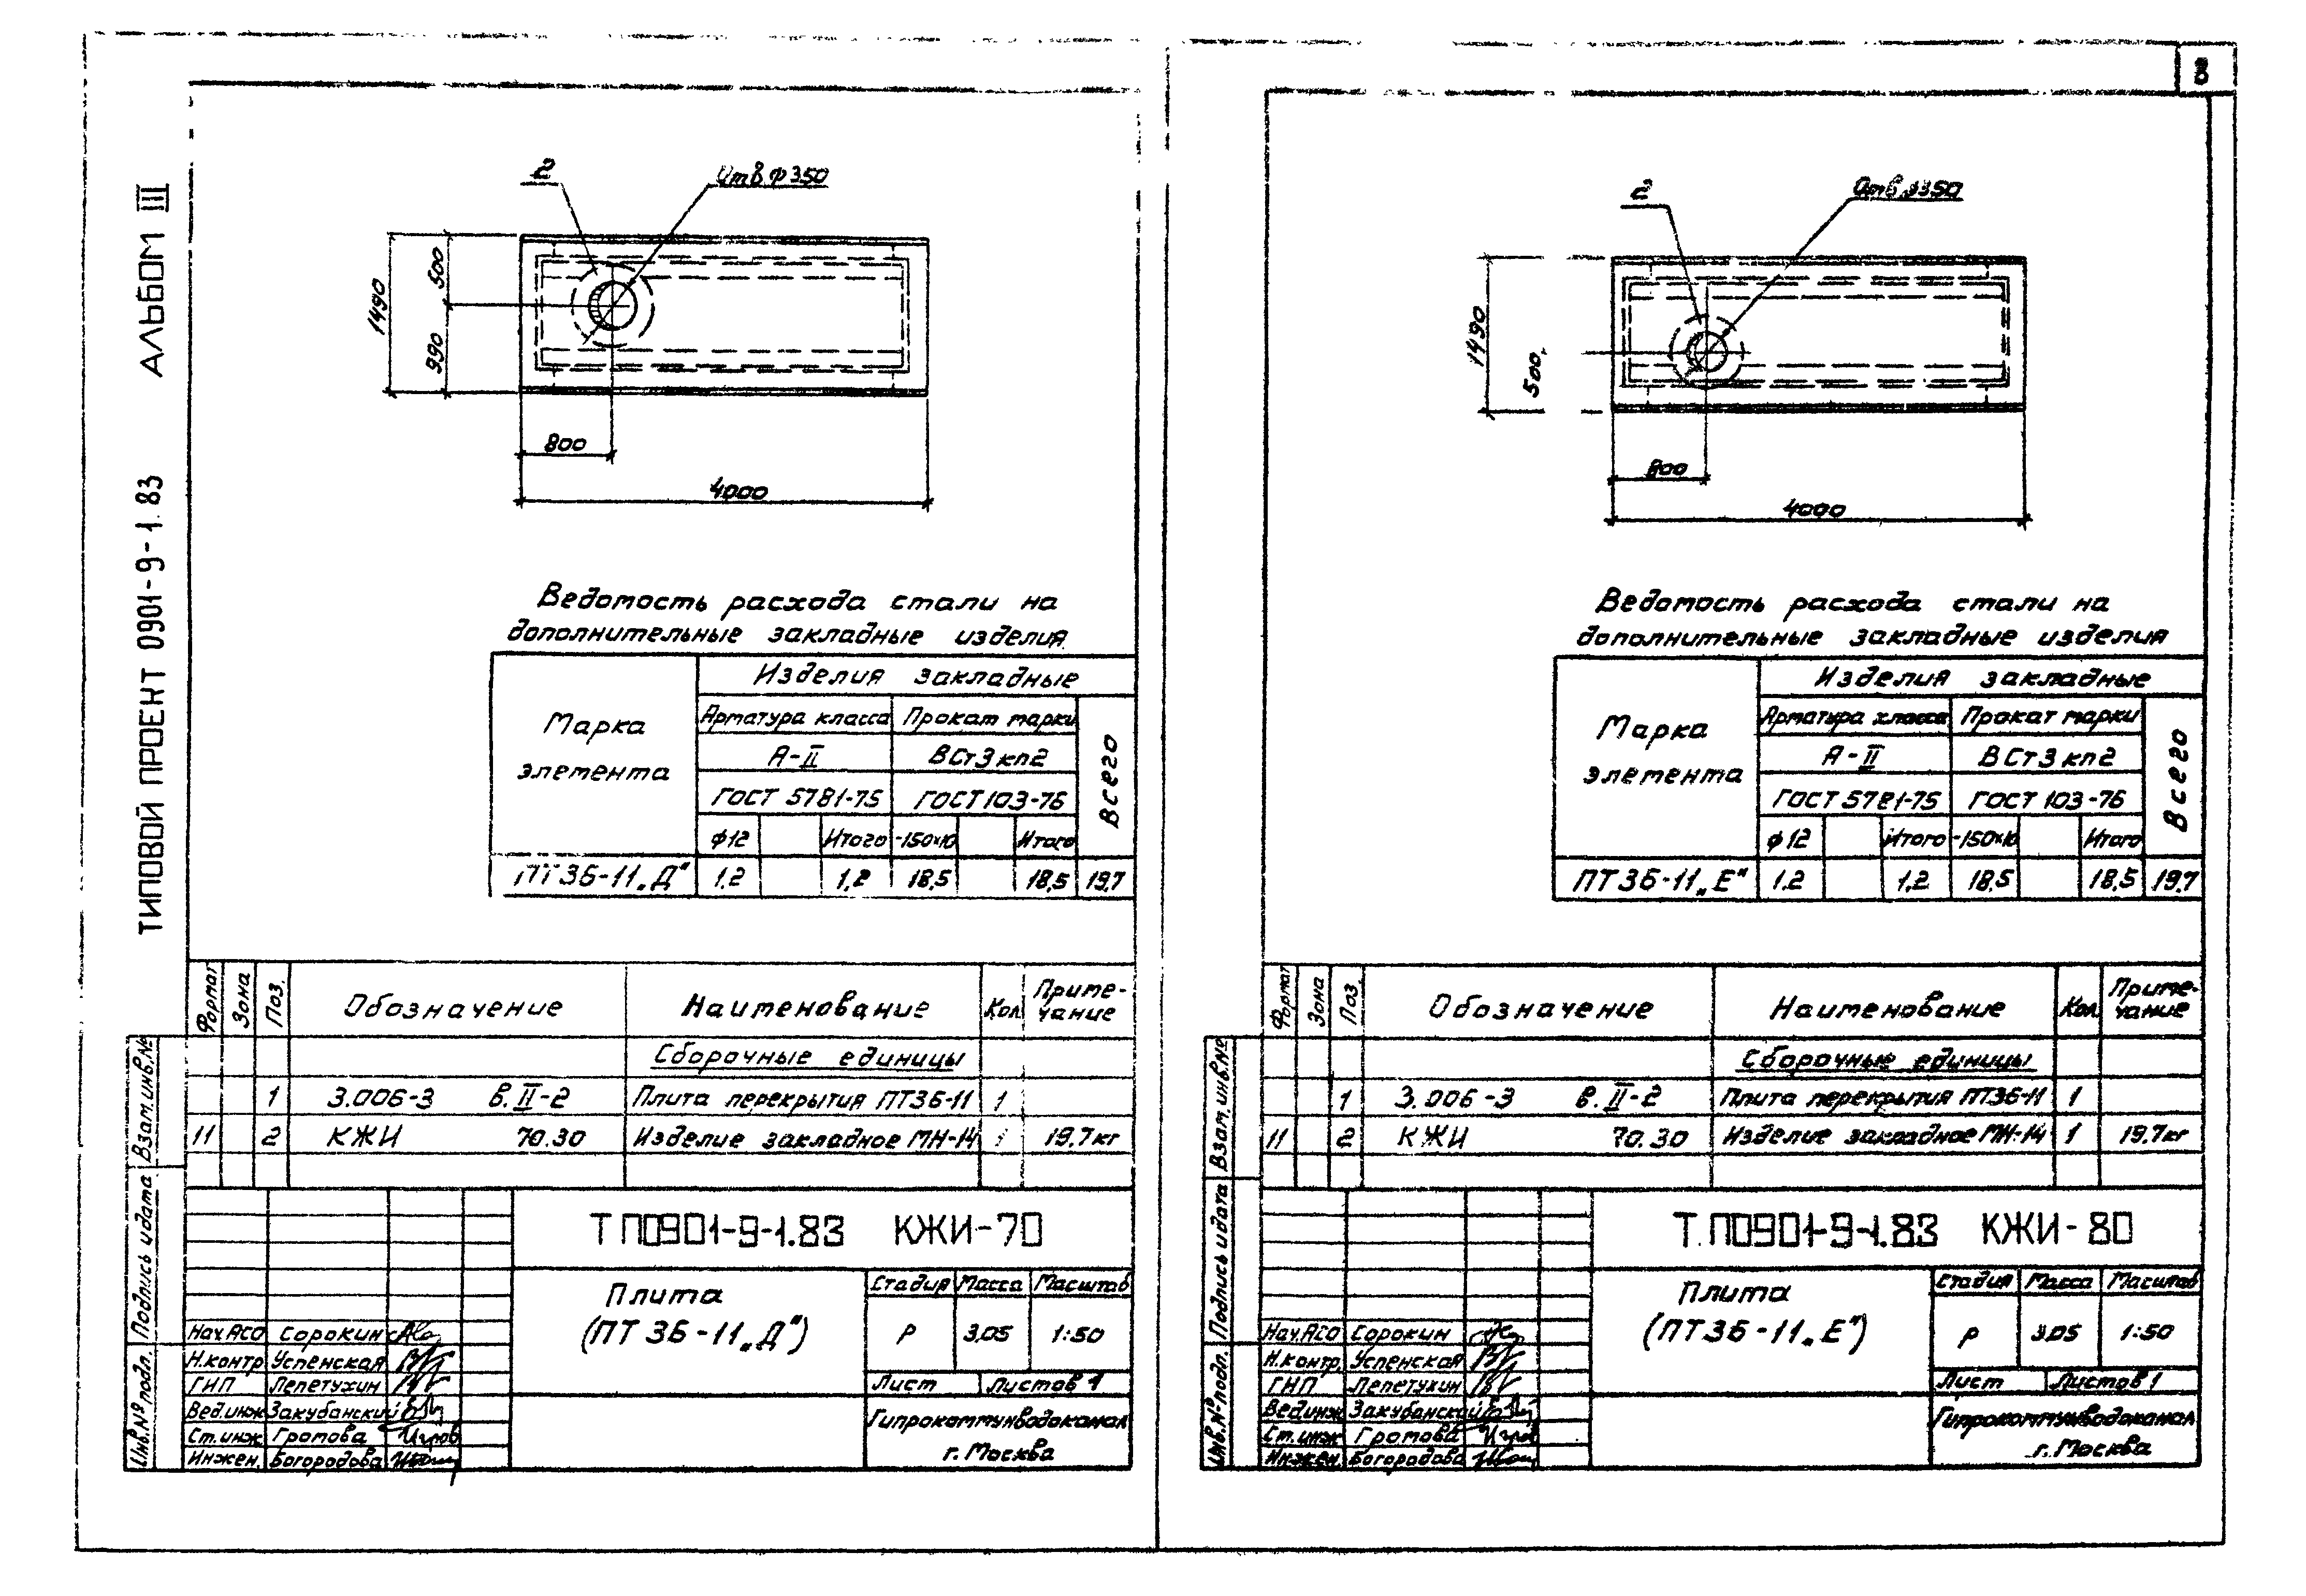 8
ТИПОВОЙ ПРОЕКТ 0901-9-1.83 АЛЬБОМ III
2
Отв. ф350
1490
500
990
800
4000
Ведомость расхода стали на
дополнительные закладные изделия
Марка элемента
Изделия закладные
Арматура класса Прокат марки
Всего
А-II ВСт3кп2
ГОСТ 5781-75 ГОСТ 103-76
ф12 Итого -150х10 Итого
ПТ36-11„Д" 1,2 1,2 18,5 18,5 19,7
Формат Зона Поз. Обозначение Наименование Кол. Примечание
Сборочные единицы
1 3.006-3 в.II-2 Плита перекрытия ПТ36-11 1
11 2 КЖИ 70.30 Изделие закладное МН-14 1 19,7кг
Инв.№подл. Подпись и дата Взам.инв.№
ТП0901-9-1.83 КЖИ-70
Плита
(ПТ36-11„Д")
Стадия Масса Масштаб
Р 3,05 1:50
Лист Листов 1
Гипрокоммунводоканал
г. Москва
Нач.АСО Сорокин
Н.контр. Успенская
ГИП Лепетухин
Вед.инж Закубанский
Ст.инж Громова
Инжен. Богородова
2
Отв. ф350
1490
500
800
4000
Ведомость расхода стали на
дополнительные закладные изделия
Марка элемента
Изделия закладные
Арматура класса Прокат марки
Всего
А-II ВСт3кп2
ГОСТ 5781-75 ГОСТ 103-76
ф12 Итого -150х10 Итого
ПТ36-11„Е" 1.2 1,2 18,5 18,5 19,7
Формат Зона Поз. Обозначение Наименование Кол. Примечание
Сборочные единицы
1 3.006-3 в.II-2 Плита перекрытия ПТ36-11 1
11 2 КЖИ 70.30 Изделие закладное МН-14 1 19,7кг
Инв.№подл. Подпись и дата Взам.инв.№
Т.П0901-9-1.83 КЖИ-80
Плита
(ПТ36-11„Е")
Стадия Масса Масштаб
Р 3,05 1:50
Лист Листов 1
Гипрокоммунводоканал
г. Москва
Нач.АСО Сорокин
Н.контр. Успенская
ГИП Лепетухин
Вед.инж Закубанский
Ст.инж Громова
Инжен. Богородова